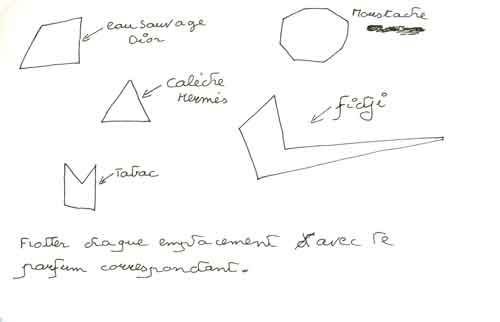 eau sauvage
Dior
Moustache
Calèche
Hermès
fidji
Tabac
Frotter chaque emplacement avec le
parfum correspondant.